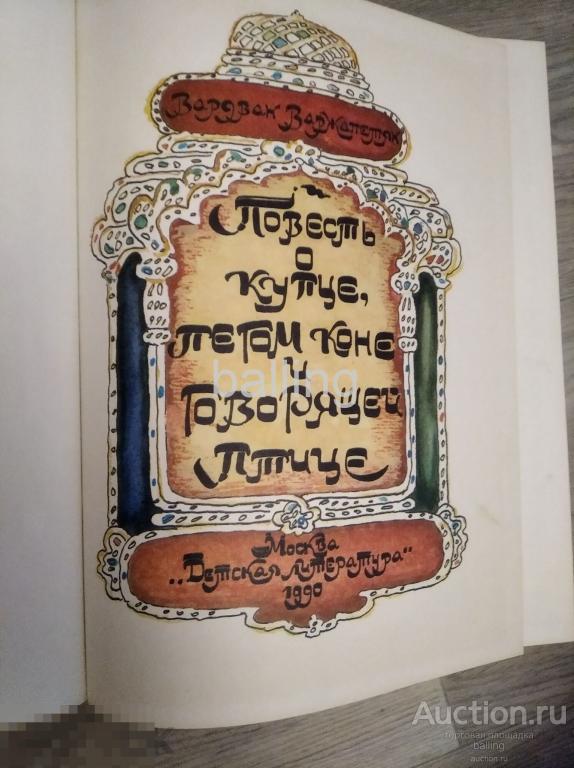 Вардван Варжапетян
Повесть
о
купце,
пегом коне
и
говорящей
птице
Москва
„Детская литература"
1990
balling
Auction.ru
торговая площадка
balling
auction.ru